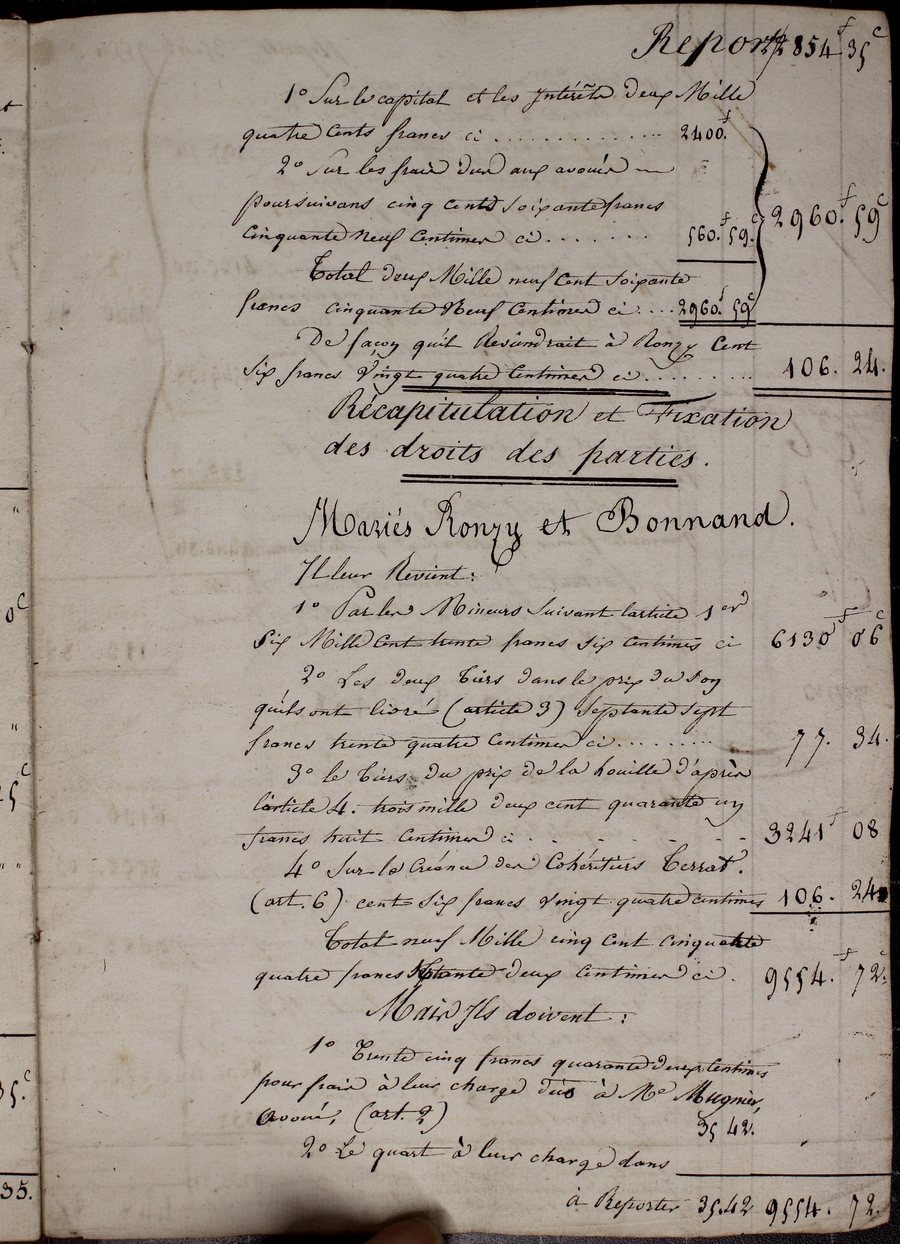 Report 2854.f 35c
1o Sur le capital et les Intérêts deux Mille
quatre cents francs ci ............. 2400.f
2o Sur les frais dus aux avoués
poursuivans cinq cents soixante francs 2960.f 59c
Cinquante Neuf Centimes ci ....... 560.f 59.c
Total deux Mille neuf Cent Soixante
francs cinquante Neuf Centimes ci .... 2960.f 59c
De façon qu'il Reviendrait à Ronzy Cent
Six francs Vingt quatre Centimes ci ......... 106. 24.
Récapitulation et Fixation
des droits des parties.
Mariés Ronzy et Bonnand.
Il leur Revient:
1o Par les Mineurs Suivant l'article 1er
Six Mille Cent trente francs six centimes ci 6130f 06c
2o Les deux tiers dans le prix du
qu'ils ont livré (article 3) Septante sept
francs trente quatre Centimes ci ......... 77. 34.
3o le tiers du prix de la houille d'après
l'article 4. trois mille deux cent quarante un
francs huit Centimes ci ........ 3241f 08
4o Sur la Créance des Cohéritiers Terrat.
(art. 6) cent six francs vingt quatre centimes 106. 24.
Total neuf Mille cinq Cent Cinquante
quatre francs septante deux Centimes ci. 9554.f 72c.
Mais Ils doivent:
1o Trente cinq francs quarante deux Centimes
pour frais à leur charge dûs à Me Mugnier,
avoué, (art. 2) 35 42.
2o Le quart à leur charge dans
à Reporter 35.42 9554. 72.
0c
"
"
5c
"
35.c
35.